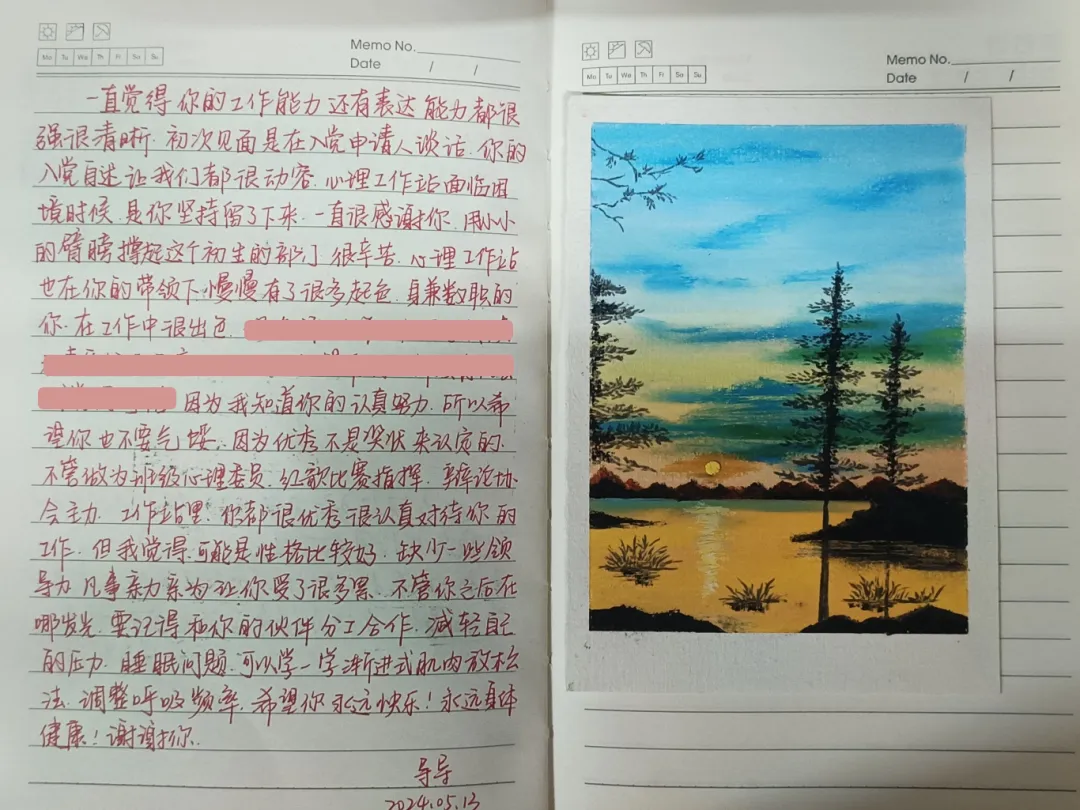 Memo No.
Date / /
Mo Tu We Th Fr Sa Su
一直觉得你的工作能力还有表达能力都很
强很清晰.初次见面是在入党申请人谈话.你的
入党自述让我们都很动容.心理工作站面临困
境时候.是你坚持留了下来.一直很感谢你.用小小
的臂膀撑起这个初生的部门很辛苦.心理工作站
也在你的带领下慢慢有了很多起色.身兼数职的
你.在工作中很出色.
因为我知道你的认真努力.所以希
望你也不要气馁.因为优秀不是奖状来认定的.
不管做为班级心理委员.红歌比赛指挥.辩论协
会主力.工作站里.你都很优秀很认真对待你的
工作.但我觉得.可能是性格比较好.缺少一些领
导力.凡事亲力亲为让你受了很多累.不管你之后在
哪发光.要记得和你的伙伴分工合作.减轻自己
的压力.睡眠问题.可以学一学渐进式肌肉放松
法.调整呼吸频率.希望你永远快乐!永远身体
健康!谢谢你.
导导
2024.05.13
Memo No.
Date / /
Mo Tu We Th Fr Sa Su